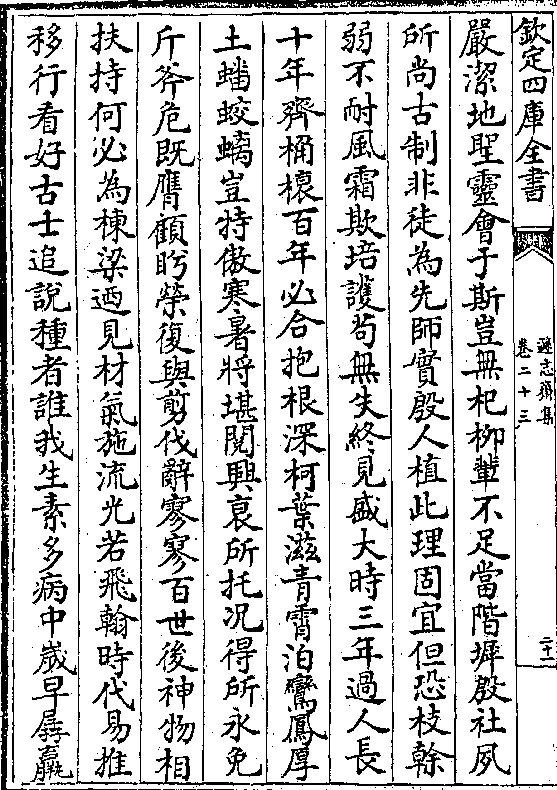 欽定四庫全書
遜志齋集
卷二十三
二十一
嚴潔地聖靈會于斯豈無杞柳輩不足當階墀殷社夙
所尚古制非徒為先師實殷人植此理固宜但恐枝榦
弱不耐風霜欺培護茍無失終見盛大時三年過人長
十年齊桷榱百年必合抱根深柯葉滋青霄泊鸞鳳厚
土蟠蛟螭豈特傲寒暑將堪閱興衰所托况得所永免
斤斧危既膺顧盻榮復與剪伐辭寥寥百世後神物相
扶持何必為棟梁迺見材氣施流光若飛翰時代易推
移行看好古士追說種者誰我生素多病中歳早孱羸